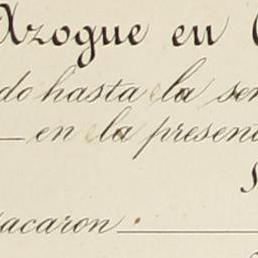 Azogue en
do hasta la sen
en la present
S
acaron